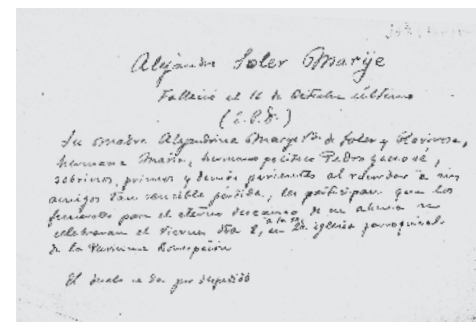 Alejandro Soler Marije
Falleció el 16 de Octubre último
(E.P.D.)
Su madre Alejandrina Marije Vda. de Soler y
hermana María, hermano político Pedro
sobrinos, primos y demás parientes al a sus
amigos tan sensible pérdida, les participan que los
funerales para el eterno descanso de su alma se
celebraran el Viernes día 8, en la iglesia parroquial
de la Purísima Concepción
El duelo se da por despedido